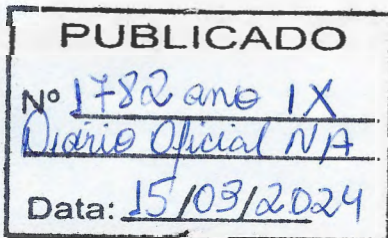 PUBLICADO
Nº 1782 ano IX
Diário Oficial NA
Data: 15/03/2024